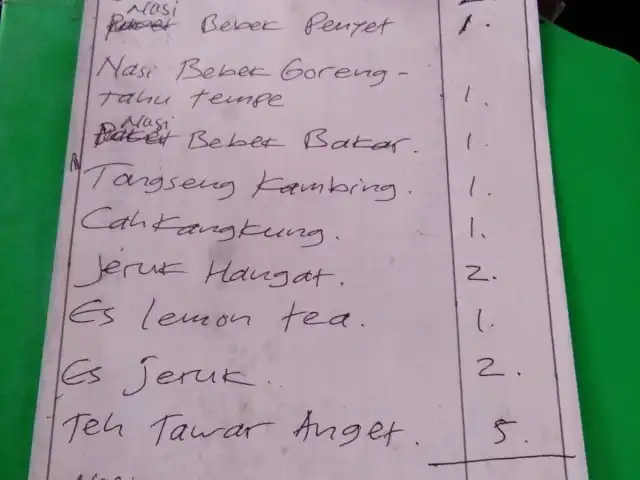 Nasi Bebek Penyet 1.
Nasi Bebek Goreng -
tahu tempe 1.
Nasi Bebek Bakar. 1.
Tongseng Kambing. 1.
Cah Kangkung. 1.
Jeruk Hangat. 2.
Es lemon tea. 1.
Es Jeruk. 2.
Teh Tawar Anget. 5.